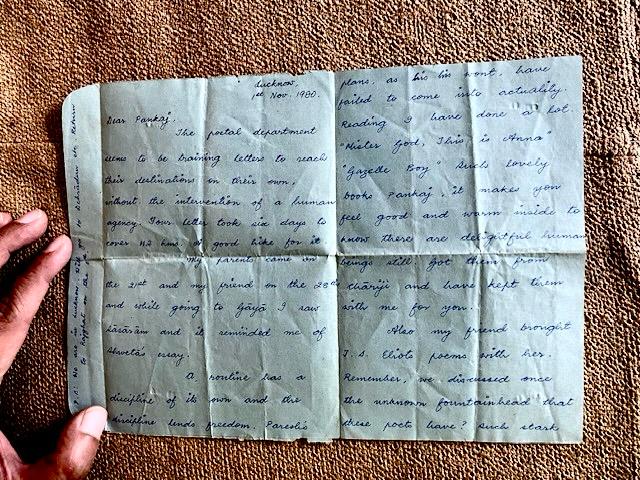 Lucknow,
1st Nov. 1980.
Dear Pankaj,
The postal department
seems to be training letters to reach
their destinations on their own,
without the intervention of a human
agency. Your letter took six days to
cover 42 kms. A good hike for it
My parents came on
the 21st and my friend on the 28th
and while going to Gāyā I saw
Sāsārām and it reminded me of
Shweta's essay.
A routine has a
discipline of its own and the
discipline lends freedom. Paresh's
plans, as his his wont, have
failed to come into actuality.
Reading I have done a lot.
"Mister God, This is Anna"
"Gazede Boy" Such lovely
books Pankaj, it makes you
feel good and warm inside to
know there are delightful human
beings still. Got them from
and have kept them
with me for you.
Also my friend brought
T.S. Eliot's poems with her.
Remember, we discussed once
the unknown fountainhead that
these poets have? Such stark